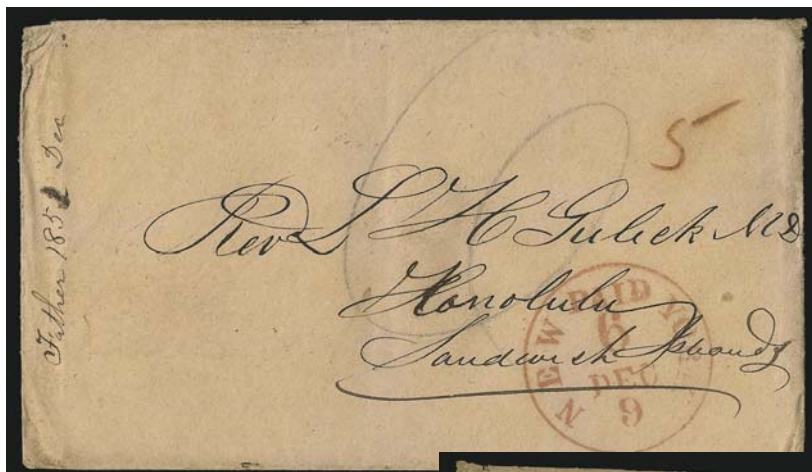 Father 1852 Dec
6
5
Rev L H Gulick MD
Honolulu
Sandwich Islands
NEW PAID YORK
6
DEC
9